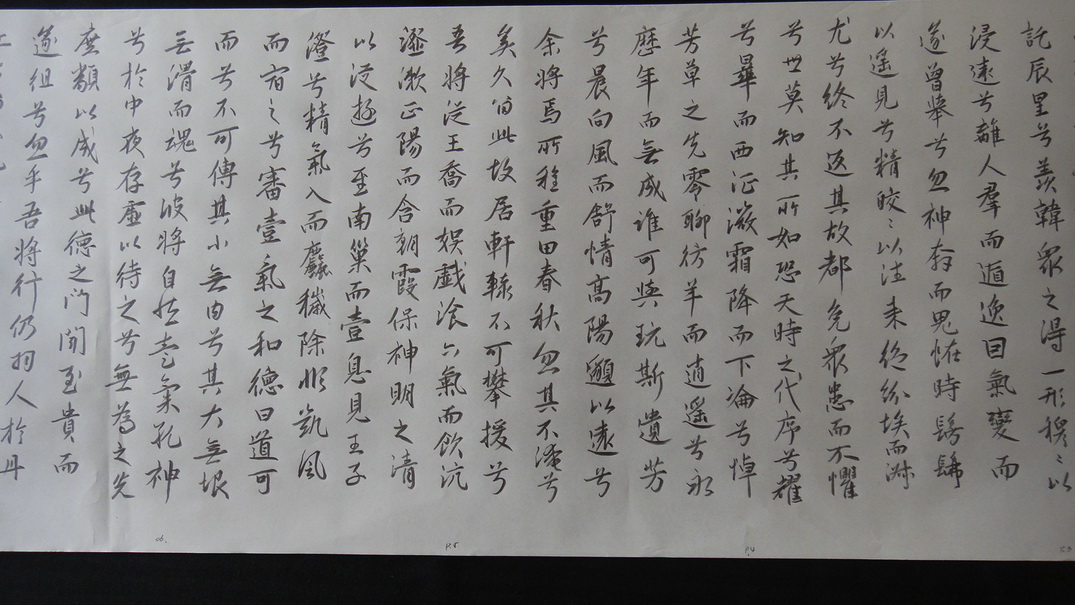 託辰星兮羨韓眾之得一形穆〻以
浸遠兮離人羣而遁逸因氣變而
遂曾舉兮忽神奔而鬼怪時髣髴
以遙見兮精皎〻以往来絕紛埃而淑
尤兮終不返其故都免衆患而不懼
兮世莫知其所如恐天時之代序兮耀
兮曅而西征微霜降而下淪兮悼
芳草之先零聊彷羊而逍遙兮永
歷年而無成誰可與玩斯遺芳
兮晨向風而舒情高陽邈以遠兮
余將焉所程重曰春秋忽其不淹兮
奚久留此故居軒轅不可攀援兮
吾將從王喬而娛戲飡六氣而飲沆
瀣漱正陽而含朝霞保神明之清
以從遊兮至南巢而壹息見王子
澄兮精氣入而麤穢除順凱風
而宿之兮審壹氣之和德曰道可
而兮不可傳其小無內兮其大無垠
無滑而魂兮彼將自然壹氣孔神
兮於中夜存虛以待之兮無為之先
庶類以成兮此德之門聞至貴而
遂徂兮忽乎吾將行仍羽人於丹